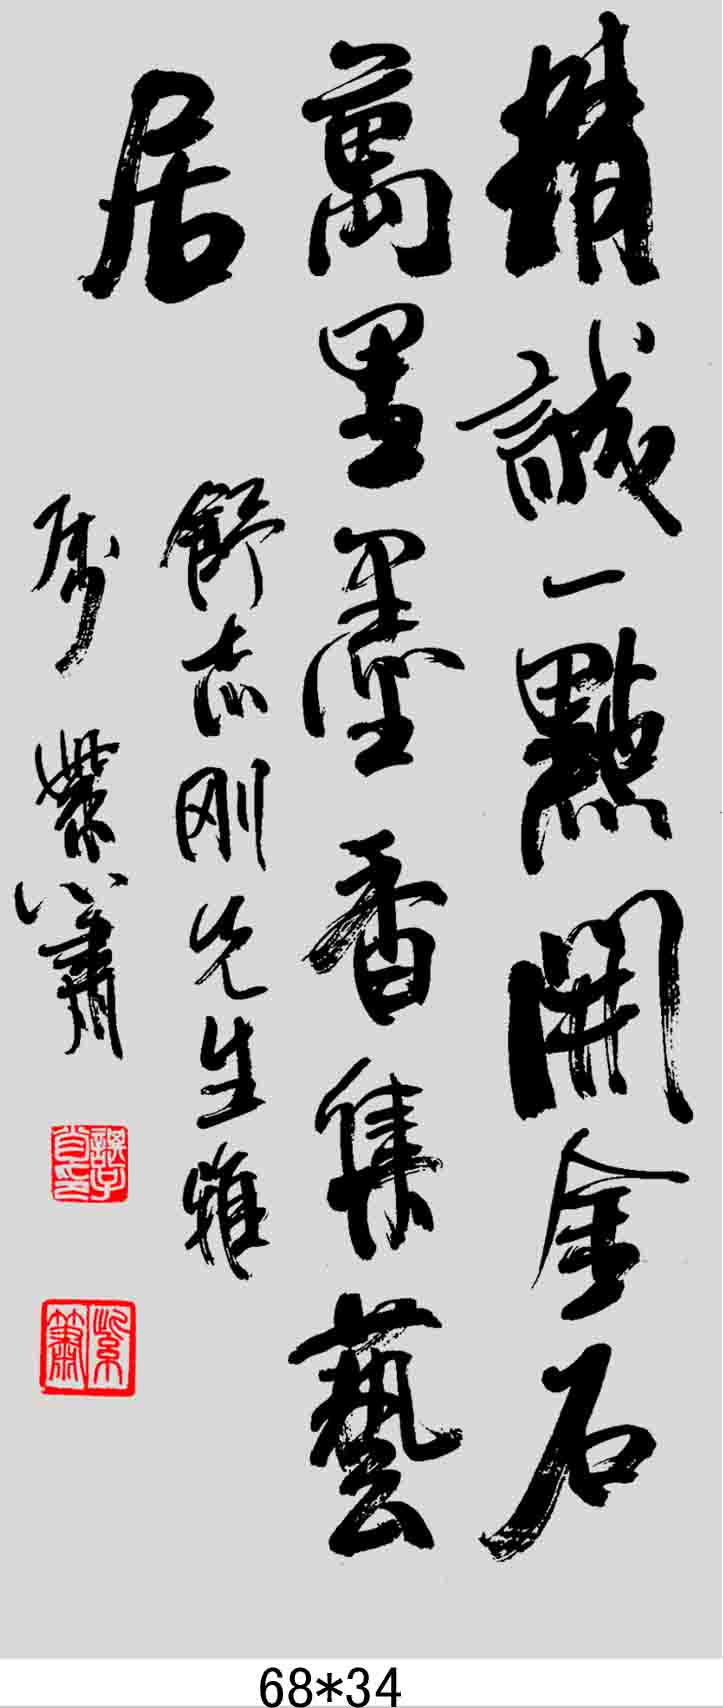 精誠一點開金石
萬里墨香集藝
居
舒志刚先生雅
属 紫簫
紫簫
68*34